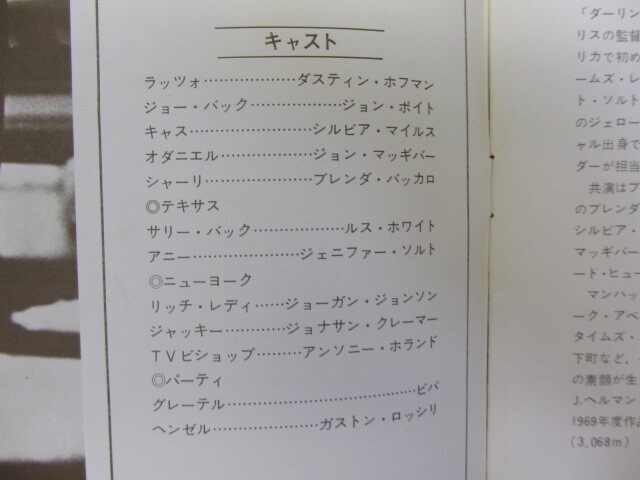 キャスト
ラッツォ………………ダスティン・ホフマン
ジョー・バック………………ジョン・ボイト
キャス………………………シルビア・マイルス
オダニエル………………ジョン・マッギバー
シャーリ…………………ブレンダ・バッカロ
◎テキサス
サリー・バック………………ルス・ホワイト
アニー…………………ジェニファー・ソルト
◎ニューヨーク
リッチ・レディ……ジョーガン・ジョンソン
ジャッキー…………ジョナサン・クレーマー
TVビショップ………アンソニー・ホランド
◎パーティ
グレーテル………………………………ビバ
ヘンゼル…………………ガストン・ロッシリ
「ダーリン
リスの監督
リカで初め
ームズ・レ
ト・ソルト
のジェロー
ャル出身で
ダーが担当
共演はブ
のブレンダ
シルビア・
マッギバー
ード・ヒュー
マンハッ
ーク・アベ
タイムズ・
下町など、
の素顔が生
J.ヘルマン
1969年度作品
(3,068m)